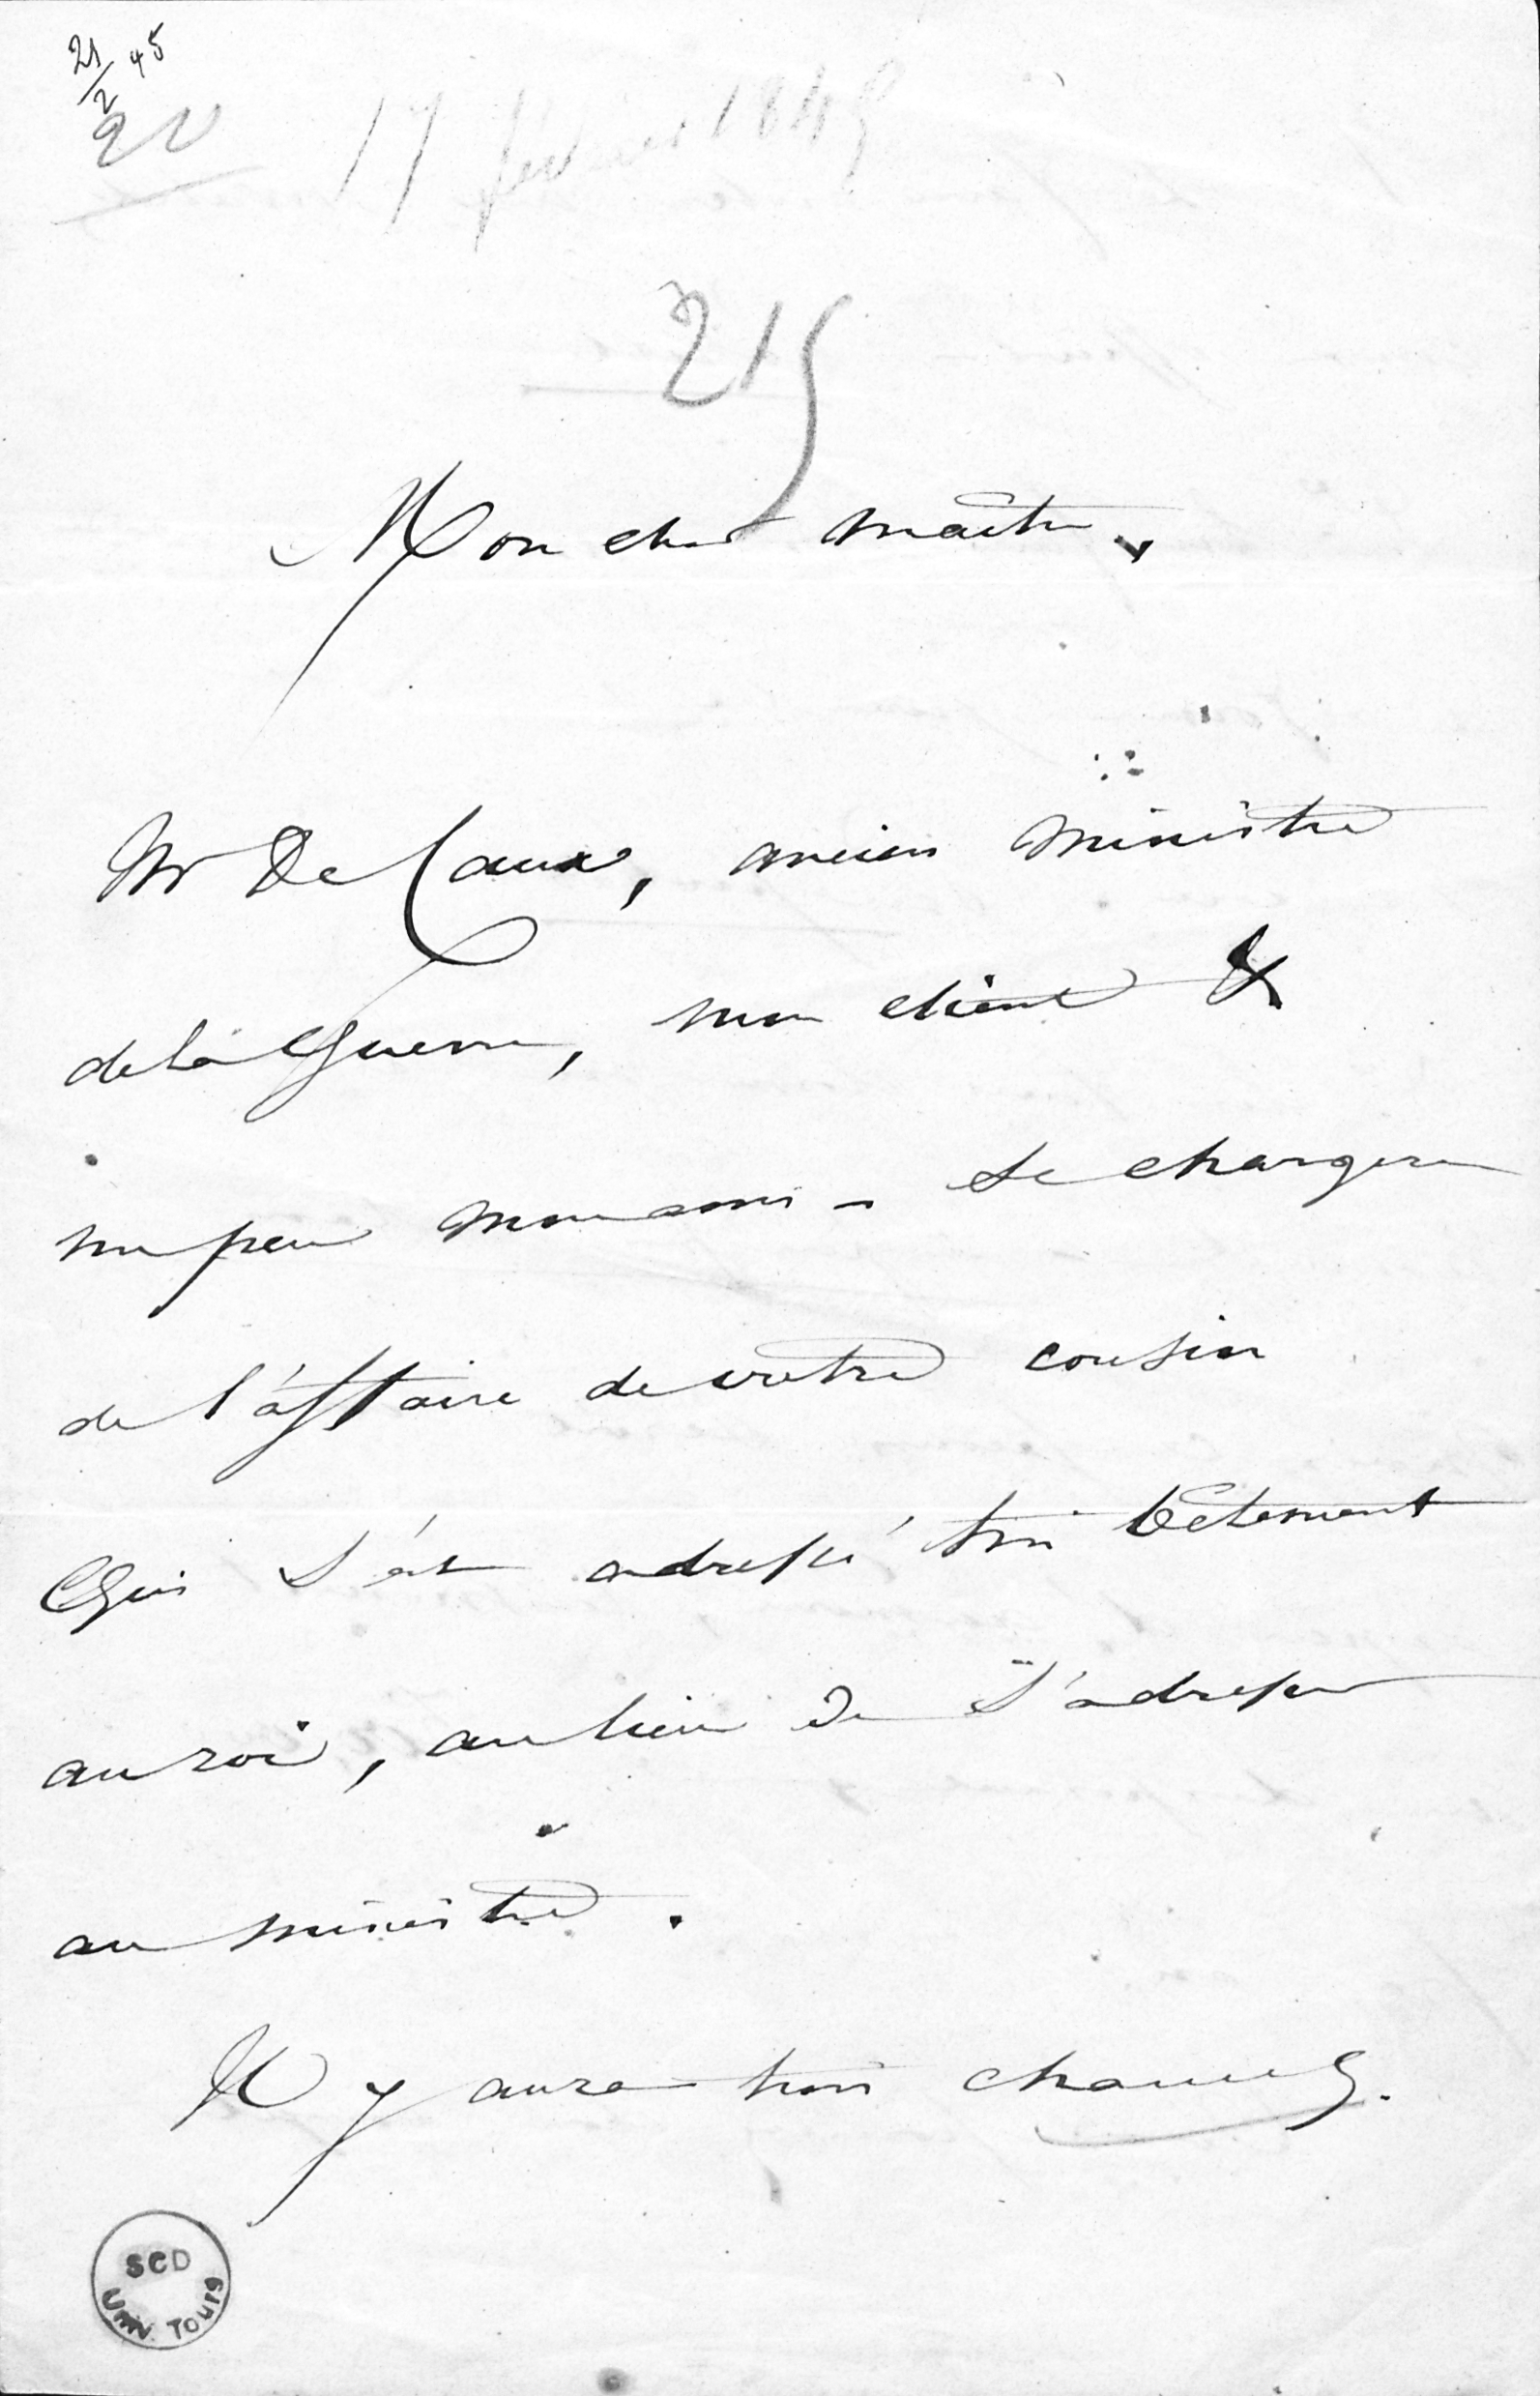 21/2 45
20
17 février 1845
215
Mon cher maitre,
Mr De Caux, ancien ministre
de la Guerre, mon client &
un peu mon ami - se chargera
de l'affaire de votre cousin
Qui s'est adressé très bêtement
au roi, au lieu de s'adresser
au ministre.
Il y aura trois chances.
SCD
Univ. Tours